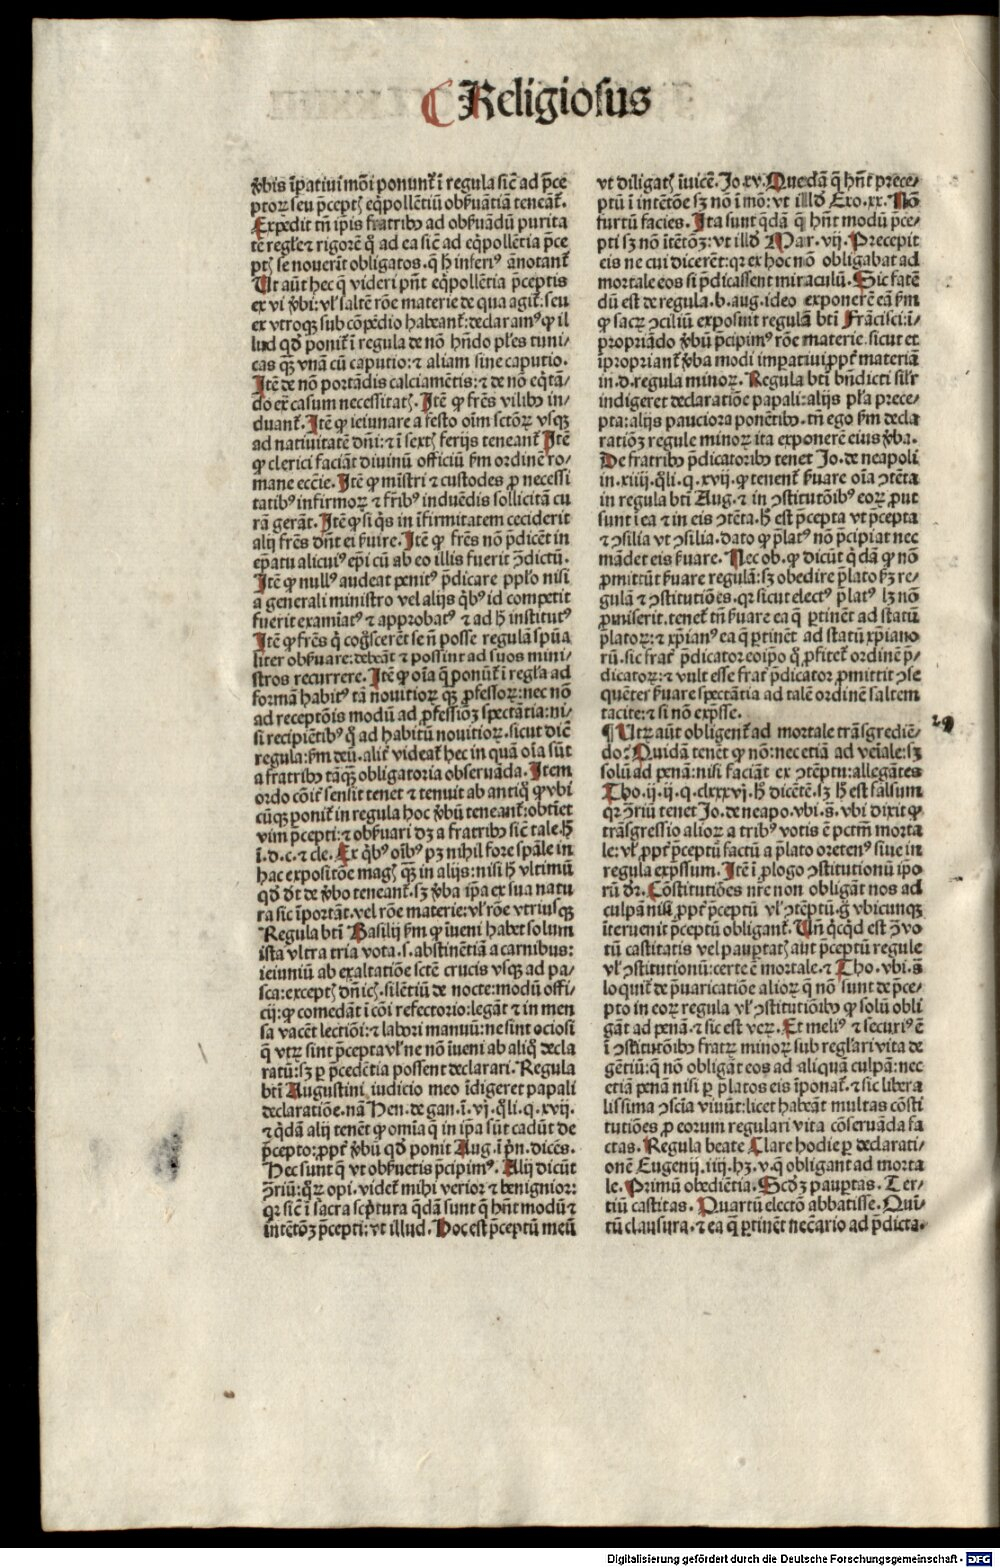 Religiosus
v̾bis īpatiui mōi ponunt᷑ ī regula sic̄ ad p̄ce
ptoꝝ seu p̄ceptꝭ eq̄pollētiū obẜuātiā teneāt᷑.
Expedit tn̄ ip̄is fratribꝰ ad obẜuādū purita
tē regl̄e ⁊ rigorē q̄ ad ea sic̄ ad eq̄pollētia p̄ce
ptꝭ se nouerīt obligatos. q̄ h̄ inferiꝰ ānotant᷑
Ut aūt hec q̄ videri pn̄t eq̄pollētia p̄ceptis
ex vi v̾bi: vl̓ saltē rōe materie de qua agit᷑: seu
ex vtroqꝫ sub cōpēdio habeant᷑: declaramꝰ ꝙ il
lud qd̄ ponit᷑ ī regula de nō hn̄do pl̄es tuni/
cas qꝫ vnā cū caputio: ⁊ aliam sine caputio.
Itē de nō portādis calciamētis: ⁊ de nō eq̄tā/
do ex̄ casum necessitatꝭ. Itē ꝙ fr̄es vilibꝰ in/
duant᷑. Itē ꝙ ieiunare a festo oīm sctōꝝ vsqꝫ
ad natiuitatē dn̄i: ⁊ ī sextꝭ ferijs teneant᷑ Itē
ꝙ clerici faciāt diuinū officiū ẜm ordinē ro/
mane ecc̄ie. Itē ꝙ mīstri ⁊ custodes ꝓ necessi
tatibꝰ infirmoꝝ ⁊ fr̄ibꝰ induēdis sollicitā cu
rā gerāt. Itē ꝙ si q̄s in īfirmitatem ceciderit
alij fr̄es dn̄t ei ẜuire. Itē ꝙ fr̄es nō p̄dicēt in
ep̄atu alicuiꝰ ep̄i cū ab eo illis fuerit ꝯdictū.
Itē ꝙ nullꝰ audeat penitꝰ p̄dicare pp̄lo nisi
a generali ministro vel alijs q̄bꝰ id competit
fuerit examīatꝰ ⁊ approbatꝰ ⁊ ad h̄ institutꝰ
Itē ꝙ fr̄es q̄ coḡscerēt se n̄ posse regulā spūa
liter obẜuare: debeāt ⁊ possint ad suos mini/
stros recurrere. Itē ꝙ oīa q̄ ponūt᷑ ī regl̄a ad
formā habitꝰ tā nouitioꝝ qꝫ ꝓfessoꝝ: nec nō
ad receptōis modū ad ꝓfessiōꝫ spectātia: ni/
si recipiētibꝰ q̄ ad habitū nouitioꝝ. sicut dic̄
regula: ẜm deū. alit᷑ videat᷑ hec in quā oīa sūt
a fratribꝰ tāqꝫ obligatoria obseruāda. Item
ordo cōit᷑ sensit tenet ⁊ tenuit ab antiq̄ ꝙ vbi
cūqꝫ ponit᷑ in regula hoc v̾bū teneant᷑: obtīet
vim p̄cepti: ⁊ obẜuari dꝫ a fratribꝰ sic̄ tale. h̄
ī. d. c. ⁊ cle. Ex q̄bꝰ oībꝰ pꝫ nihil fore spāle in
hac expositōe magꝭ qꝫ in alijs: nisi h̄ vltimū
qd̄ dt̄ de v̾bo teneant᷑. sꝫ v̾ba ip̄a ex sua natu
ra sic īportāt. vel rōe materie: vl̓ rōe vtriusqꝫ
Regula btī Basilij ẜm ꝙ iueni habet solum
ista vltra tria vota. s. abstinētiā a carnibus:
ieiuniū ab exaltatiōe sctē crucis vsqꝫ ad pa/
sca: exceptꝭ dn̄icꝭ. silētiū de nocte: modū offi/
cij: ꝙ comedāt ī cōi refectorio: legāt ⁊ in men
sa vacēt lectiōi: ⁊ labori manuū: ne sint ociosi
q̄ vtꝝ sint p̄cepta vl̓ ne nō īueni ab aliq̄ decla
ratū: sꝫ ꝑ p̄cedētia possent declarari. Regula
btī Augustini iudicio meo īdigeret papali
declaratiōe. nā Hen. de gan. ī. vj. q̄li. q. xvij.
⁊ q̄dā alij tenēt ꝙ omīa q̄ in ip̄a sūt cadūt de
p̄cepto: ꝓpt᷑ v̾bū qd̄ ponit Aug. ī pn̄. dicēs.
Hec sunt q̄ vt obẜuetis p̄cipimꝰ. Alij dicūt
ꝯ̄riū: q̄ꝝ opi. videt᷑ mihi verior ⁊ benignior:
qꝛ sic̄ ī sacra scp̄tura q̄dā sunt q̄ hn̄t modū ⁊
intētōꝫ p̄cepti: vt illud. Hoc est p̄ceptū meū
vt diligatꝭ īuicē. Jo. xv. Quedā q̄ hn̄t prece/
ptū ī intētōe sꝫ nō ī mō: vt illd̄ Exo. xx. Nō
furtū facies. Ita sunt q̄dā q̄ hn̄t modū p̄ce/
pti sꝫ nō ītētōꝫ: vt illd̄ Mar. vij. Precepit
eis ne cui dicerēt: qꝛ ex hoc nō obligabat ad
mortale eos si p̄dicassent miraculū. Sic fatē
dū est de regula. b. aug. ideo exponerē eā ẜm
ꝙ sacꝝ ꝯciliū exposuit regulā btī Frācisci: ī/
propriādo v̾bū p̄cipimꝰ rōe materie. sicut et
īpropriant᷑ v̾ba modi imꝑatiui ꝓpt᷑ materiā
in. d. regula minoꝝ. Regula btī bn̄dicti sil̓r
indigeret declaratiōe papali: alijs pl̓a prece/
pta: alijs pauciora ponētibꝰ. tn̄ ego ẜm decla
ratiōꝫ regule minoꝝ ita exponerē eius v̾ba.
De fratribꝰ p̄dicatoribꝰ tenet Jo. de neapoli
in. xiiij. q̄li. q. xvij. ꝙ tenent᷑ ẜuare oīa ꝯtēta
in regula btī Aug. ⁊ in ꝯstitutōibꝰ eoꝝ ꝓut
sunt ī ea ⁊ in eis ꝯtēta. h̄ est p̄cepta vt p̄cepta
⁊ ꝯsilia vt ꝯsilia. dato ꝙ p̄latꝰ nō p̄cipiat nec
mādet eis ẜuare. Nec ob. ꝙ dicūt q̄ dā ꝙ nō
ꝓmittūt ẜuare regulā: sꝫ obedire p̄lato ẜꝫ re/
gulā ⁊ ꝯstitutiōes. qꝛ sicut electꝰ p̄latꝰ lꝫ nō
ꝓmiserit. tenet᷑ tn̄ ẜuare ea q̄ ꝑtinēt ad statū
p̄latoꝝ: ⁊ xp̄ianꝰ ea q̄ ꝑtinēt ad statū xp̄iano
rū. sic frat᷑ p̄dicator eoip̄o q̄ ꝓfitet᷑ ordinē p̄/
dicatoꝝ: ⁊ vult esse frat᷑ p̄dicator ꝓmittit ꝯse
quēter ẜuare spectātia ad talē ordinē saltem
tacite: ⁊ si nō exp̄sse.
¶ Utꝝ aūt obligent᷑ ad mortale trāsgrediē/
do? Quidā tenēt ꝙ nō: nec etiā ad veīale: sꝫ
solū ad penā: nisi faciāt ex ꝯtēptu: allegātes
Tho. ij. ij. q. clxxxvj. h̄ dicētē. sꝫ h̄ est falsum
qꝛ ꝯ̄riū tenet Jo. de neapo. vbi. s̄. vbi dixit ꝙ
trāsgressio alioꝝ a tribꝰ votis ē pctm̄ morta
le: vl̓ ꝓpt᷑ p̄ceptū factū a p̄lato oretenꝰ siue in
regula exp̄ssum. Itē ī ꝓlogo ꝯstitutionū ip̄o
rū dr̄. Cōstitutiōes nr̄e non obligāt nos ad
culpā nisi ꝓpt᷑ p̄ceptū vl̓ ꝯtēptū. g̊ vbicunqꝫ
īteruenit p̄ceptū obligant᷑. Un̄ q̄cq̄d est ꝯ̄ vo
tū castitatis vel paupꝑtatꝭ aut p̄ceptū regule
vl̓ ꝯstitutionū: certe ē mortale. ⁊ Tho. vbi. s̄
loquit᷑ de p̄uaricatiōe alioꝝ q̄ nō sunt de p̄ce/
pto in eoꝝ regula vl̓ ꝯstitutiōibꝰ ꝙ solū obli
gāt ad penā. ⁊ sic est veꝝ. Et meliꝰ ⁊ securiꝰ ē
ī ꝯstitutōibꝰ fratꝝ minoꝝ sub regl̓ari vita de
gētiū: q̄ nō obligāt eos ad aliquā culpā: nec
etiā penā nisi ꝑ p̄latos eis īponat᷑. ⁊ sic libera
lissima ꝯscīa viuūt: licet habeāt multas cōsti
tutiōes ꝓ eorum regulari vita cōseruāda fa
ctas. Regula beate Clare hodie ꝑ declarati/
onē Eugenij. iiij. hꝫ. v. q̄ obligant ad morta
le. Primū obediētia. Scd̄ꝫ pauꝑtas. Ter/
tiū castitas. Quartū electō abbatisse. Quī/
tū clausura. ⁊ ea q̄ ꝑtinēt nec̄ario ad p̄dicta.
29
Digitalisierung gefördert durch die Deutsche Forschungsgemeinschaft - DFG